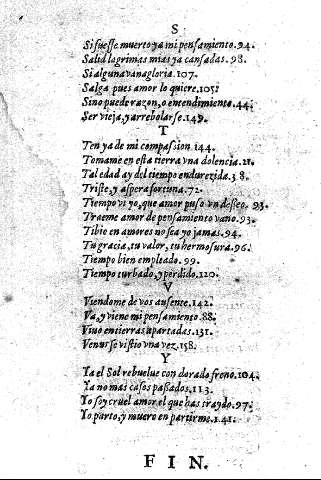 S
Si fuesse muerto ya mi pensamiento. 94.
Salid lagrimas mias ya cansadas. 98.
Si alguna vanagloria. 107.
Salga pues amor lo quiere. 105.
Sino puede razon, o entendimiento. 44.
Ser vieja, y arrebolarse. 149.
T
Ten ya de mi compassion 144.
Tomame en esta tierra vna dolencia. 21.
Tal edad ay del tiempo endurezida. 38.
Triste, y aspera fortuna. 72.
Tiempo vi yo, que amor puso vn deseo. 93.
Traeme amor de pensamiento vano. 93.
Tibio en amores no sea yo jamas. 94.
Tu gracia, tu valor, tu hermosura. 96.
Tiempo bien empleado. 99.
Tiempo turbado, y perdido. 120.
V
Viendome de vos ausente. 142.
Va, y viene mi pensamiento. 88.
Viuo en tierras apartadas. 131.
Venus se vistio vna vez. 158.
Y
Ya el Sol rebuelue con dorado freno. 104.
Ya no mas casos passados. 113.
Yo soy cruel amor el que has traydo. 97.
Yo parto, y muero en partirme. 141.
FIN.